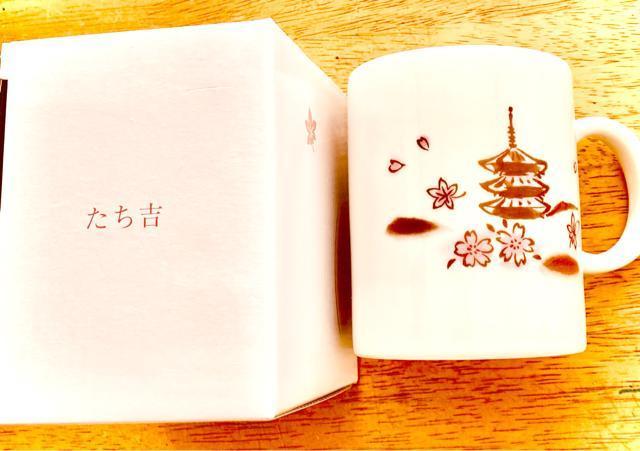 たち吉